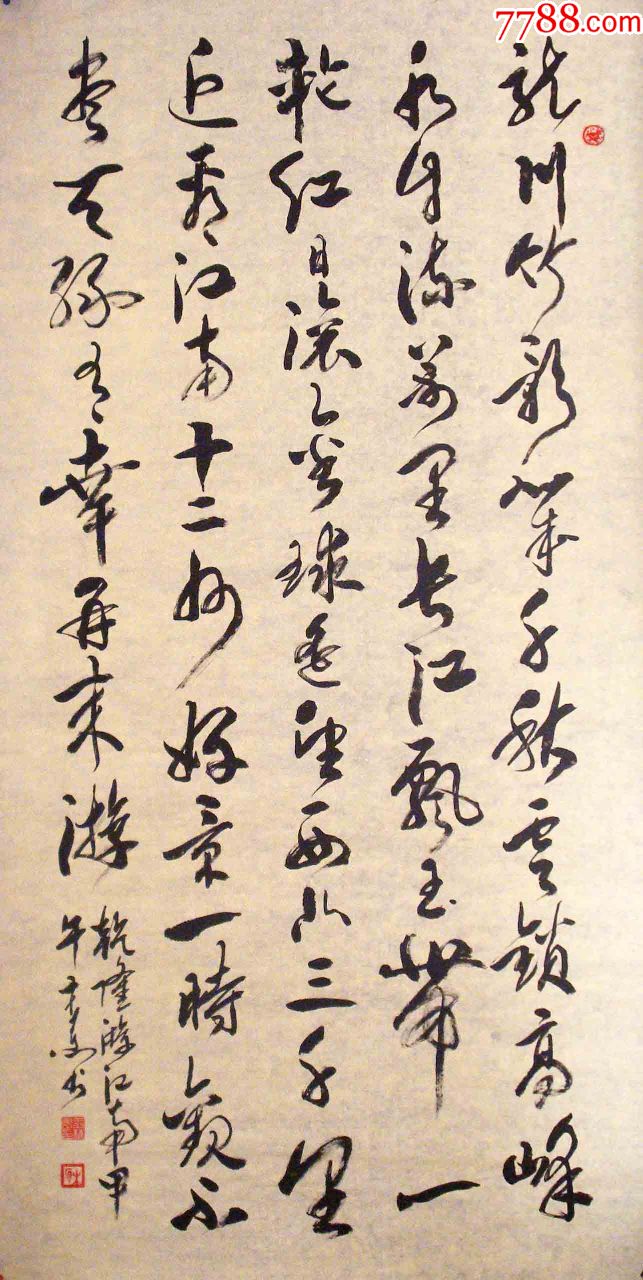 7788.com
龍川竹影幾千秋雲鎖高峰
水自流萬里長江飄玉帶一
輪红日滾金球遙望西北三千里
近看江南十二州好景一時觀不
盡天緣有幸再來游
乾隆游江南甲
午书